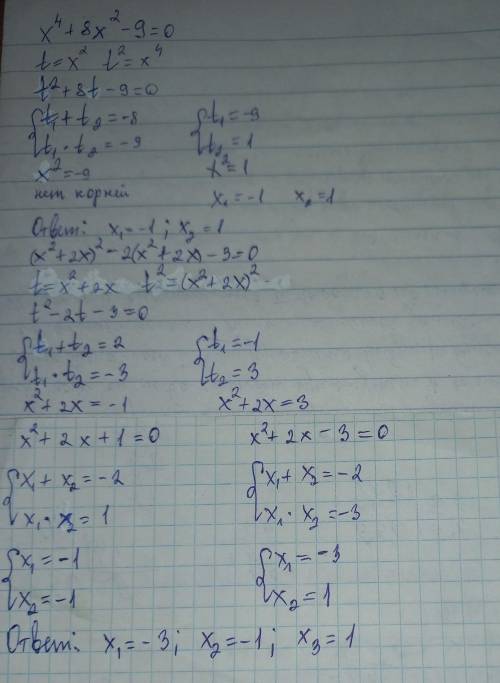 x⁴+8x²-9=0
t=x² t²=x⁴
t²+8t-9=0
{t₁+t₂=-8 {t₁=-9
t₁·t₂=-9 t₂=1
x²=-9 x²=1
нет корней x₁=-1 x₂=1
Ответ: x₁=-1; x₂=1
(x²+2x)²-2(x²+2x)-3=0
t=x²+2x t²=(x²+2x)²
t²-2t-3=0
{t₁+t₂=2 {t₁=-1
t₁·t₂=-3 t₂=3
x²+2x=-1 x²+2x=3
x²+2x+1=0 x²+2x-3=0
{x₁+x₂=-2 {x₁+x₂=-2
x₁·x₂=1 x₁·x₂=-3
{x₁=-1 {x₁=-3
x₂=-1 x₂=1
Ответ: x₁=-3; x₂=-1; x₃=1